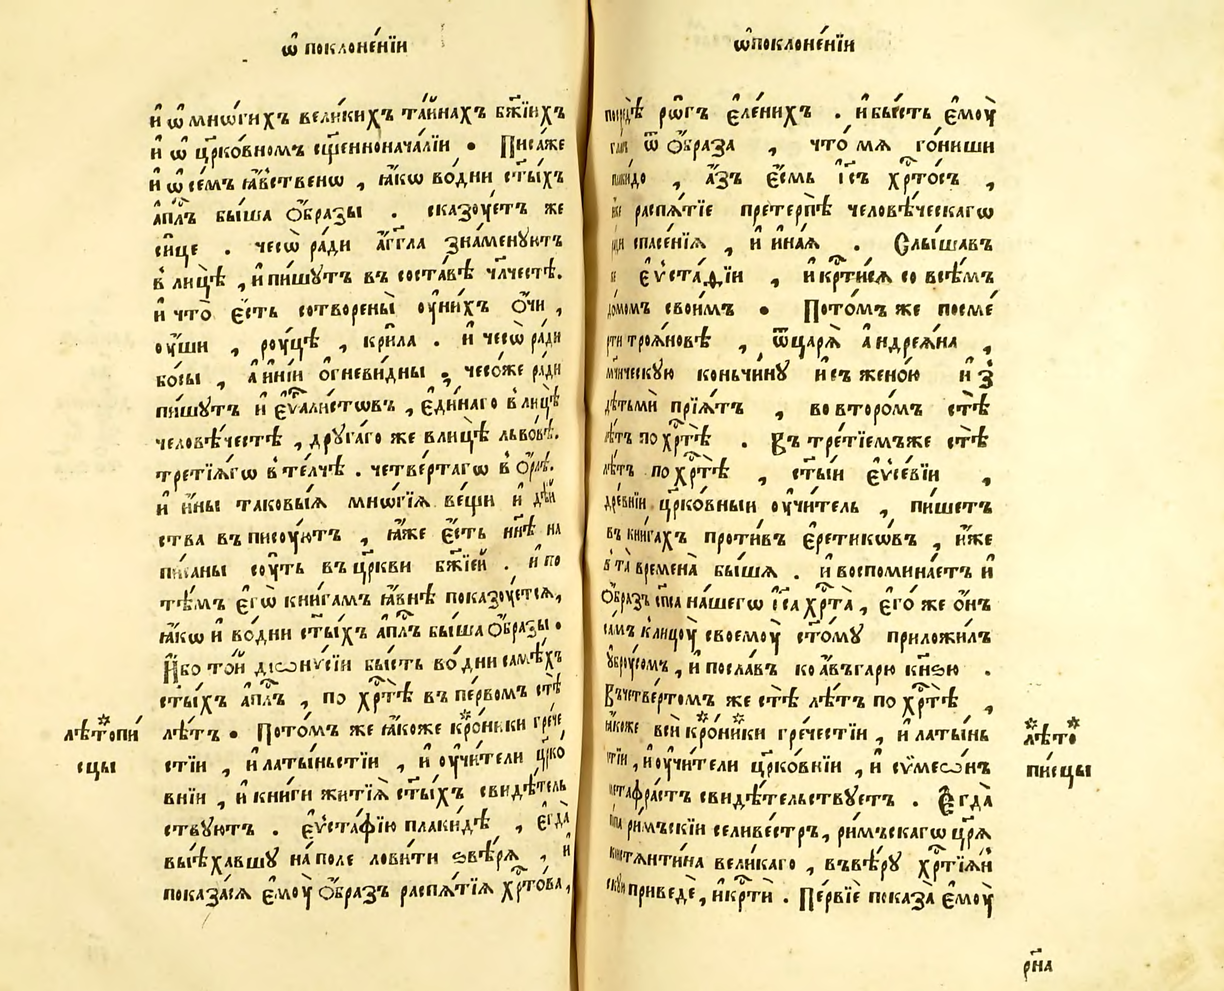 ѡ҆ поклоне́нїи
и҆ ѡ҆ мнѡ́гихъ вели́кихъ та́йнахъ бж҃їихъ
и҆ ѡ҆ цр҃ко́вномъ сщ҃енноначалїи . Писа́же
и҆ ѡ҆ се́мъ ꙗ҆́вственѡ , ꙗ҆́кѡ во дни ст҃ы́хъ
а҆пл҃ъ бы́ша ѻ҆́бразы . сказꙋ́етъ же
си́це . чесѡ̀ ра́ди а҆́гг҃ла зна́менꙋютъ
в лицѣ̀ , и҆ пи́шꙋтъ въ соста́вѣ чл҃честѣ.
и҆ что̀ є҆́сть сотворены̀ ᲂу҆ ни́хъ ѻ҆́чи ,
ᲂу҆́ши , рꙋ́цѣ , кри́ла . и҆ чесѡ̀ ра́ди
бо́сы , а҆ и҆нїи ѻ҆гневи́дны , чесо́же ра́ди
пи́шꙋтъ и҆ є҆ѵⷢ҇али́стѡвъ , є҆ди́наго в лицѣ̀
человѣ́честѣ , дрꙋга́го же в лицѣ̀ льво́вѣ.
тре́тїѧгѡ в те́лчѣ . четве́ртагѡ в ѻ҆́рлѣ.
и҆ и҆́ны таковы́ѧ мнѡ́гїѧ ве́щи и҆ дѣ́й
ства въ писꙋ́ютъ , ꙗ҆́же є҆́сть нн҃ѣ на
пи́саны сꙋ́ть въ цр҃кви бж҃їей . и҆ по
тѣ́мъ є҆гѡ̀ кни́гамъ ꙗ҆́внѣ показꙋ́етсѧ,
ꙗ҆́кѡ и҆ во́ дни ст҃ы́хъ а҆пл҃ъ бы́ша ѻ҆́бразы .
И҆́бо то́й дїѡни́сїи бы́сть во́ дни самѣ́хъ
ст҃ы́хъ а҆пл҃ъ , по хрⷭ҇тѣ̀ въ пе́рвомъ стѣ̀
лѣ́тъ . Пото́мъ же ꙗ҆́коже кро́ники гре́че
стїи , и҆ латы́ньстїи , и҆ ᲂу҆чи́тели цр҃ко́
внїи , и҆ кни́ги житїѧ̀ ст҃ы́хъ свидѣ́тель
ствꙋютъ . є҆ѵ҆ста́фїю плаки́дѣ , є҆гда̀
вы́ѣхавшꙋ на́ поле лови́ти ѕвѣ́рѧ , и҆
показа́сѧ є҆мꙋ̀ ѻ҆́бразъ распѧ́тїѧ хрⷭ҇то́ва,
лѣ́топи́
сцы
ѡ҆ поклоне́нїи
рѡ́гъ є҆ле́нихъ . и҆ бы́сть є҆мꙋ̀
ѿ ѻ҆́браза , что̀ мѧ̀ го́ниши
а҆́зъ є҆́смь і҆с҃ъ хрⷭ҇то́съ ,
распѧ́тїе претерпѣ̀ человѣ́ческагѡ
спасе́нїѧ , и҆ и҆на́ѧ . Слы́шавъ
є҆ѵ҆ста́фїи , и҆ крⷭ҇ти́сѧ со всѣ́мъ
до́момъ свои́мъ . Пото́мъ же по сме́
рти троѧ́новѣ , ѿ царѧ̀ а҆ндреѧ́на ,
мч҃ническꙋю коньчи́нꙋ и҆ съ жено́ю и҆ з
дѣтьмѝ прїѧ́тъ , во второ́мъ стѣ̀
лѣ́тъ по хрⷭ҇тѣ̀ . Въ тре́тїемъже стѣ̀
лѣ́тъ по хрⷭ҇тѣ̀ , ст҃ы́и є҆ѵ҆се́вїи ,
дре́внїи цр҃ко́вныи ᲂу҆чи́тель , пи́шетъ
въ кни́гахъ проти́въ є҆ретикѡ́въ , и҆́же
в та̀ времена̀ бы́шѧ . и҆ воспомина́етъ и҆
ѻ҆́бразъ сп҃са на́шегѡ і҆с҃а хрⷭ҇та̀ , є҆го́ же ѻ҆́нъ
са́мъ к лицꙋ̀ своемꙋ̀ ст҃о́мꙋ приложи́лъ
ᲂу҆брꙋ́сомъ , и҆ посла́въ ко а҆́въгарю кн҃ѕю .
Въ четве́ртомъ же стѣ̀ лѣ́тъ по хрⷭ҇тѣ̀ ,
ꙗ҆́коже всѝ кро́ники гре́честїи , и҆ латы́нь
стїи , и҆ ᲂу҆чи́тели цр҃ко́внїи , и҆ сѷмеѡ́нъ
метафра́стъ свидѣ́тельствꙋетъ . Є҆гда̀
па́па ри́мъскїи селиве́стръ, ри́мъскагѡ цр҃ѧ̀
костѧнти́на вели́каго , въ вѣ́рꙋ хрⷭ҇тїѧ́н
скꙋю приведѐ , и҆ крⷭ҇тѝ . Пе́рвїе показа̀ є҆мꙋ̀
лѣ́то
пи́сцы
рн҃а